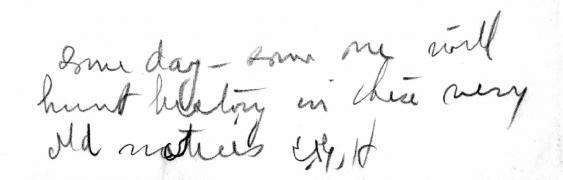 some day - some one will
hunt history in these very
old notices